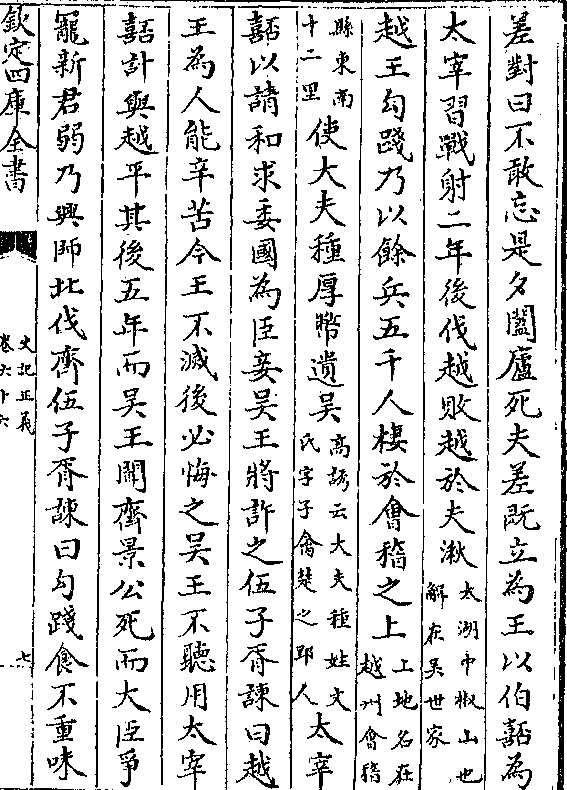 差對曰不敢忘是夕闔廬死夫差既立為王以伯嚭為
太宰習戰射二年後伐越敗越於夫湫太湖中椒山也解在吳世家
越王句踐乃以餘兵五千人棲於會稽之上土地名在越州會稽
縣東南十二里使大夫種厚幣遺吳高誘云大夫種姓文氏字子禽楚之郢人太宰
嚭以請和求委國為臣妾吳王將許之伍子胥諫曰越
王為人能辛苦今王不滅後必悔之吳王不聽用太宰
嚭計與越平其後五年而吳王聞齊景公死而大臣爭
寵新君弱乃興師北伐齊伍子胥諫曰句踐食不重味
欽定四庫全書
史記正義
卷六十六
七